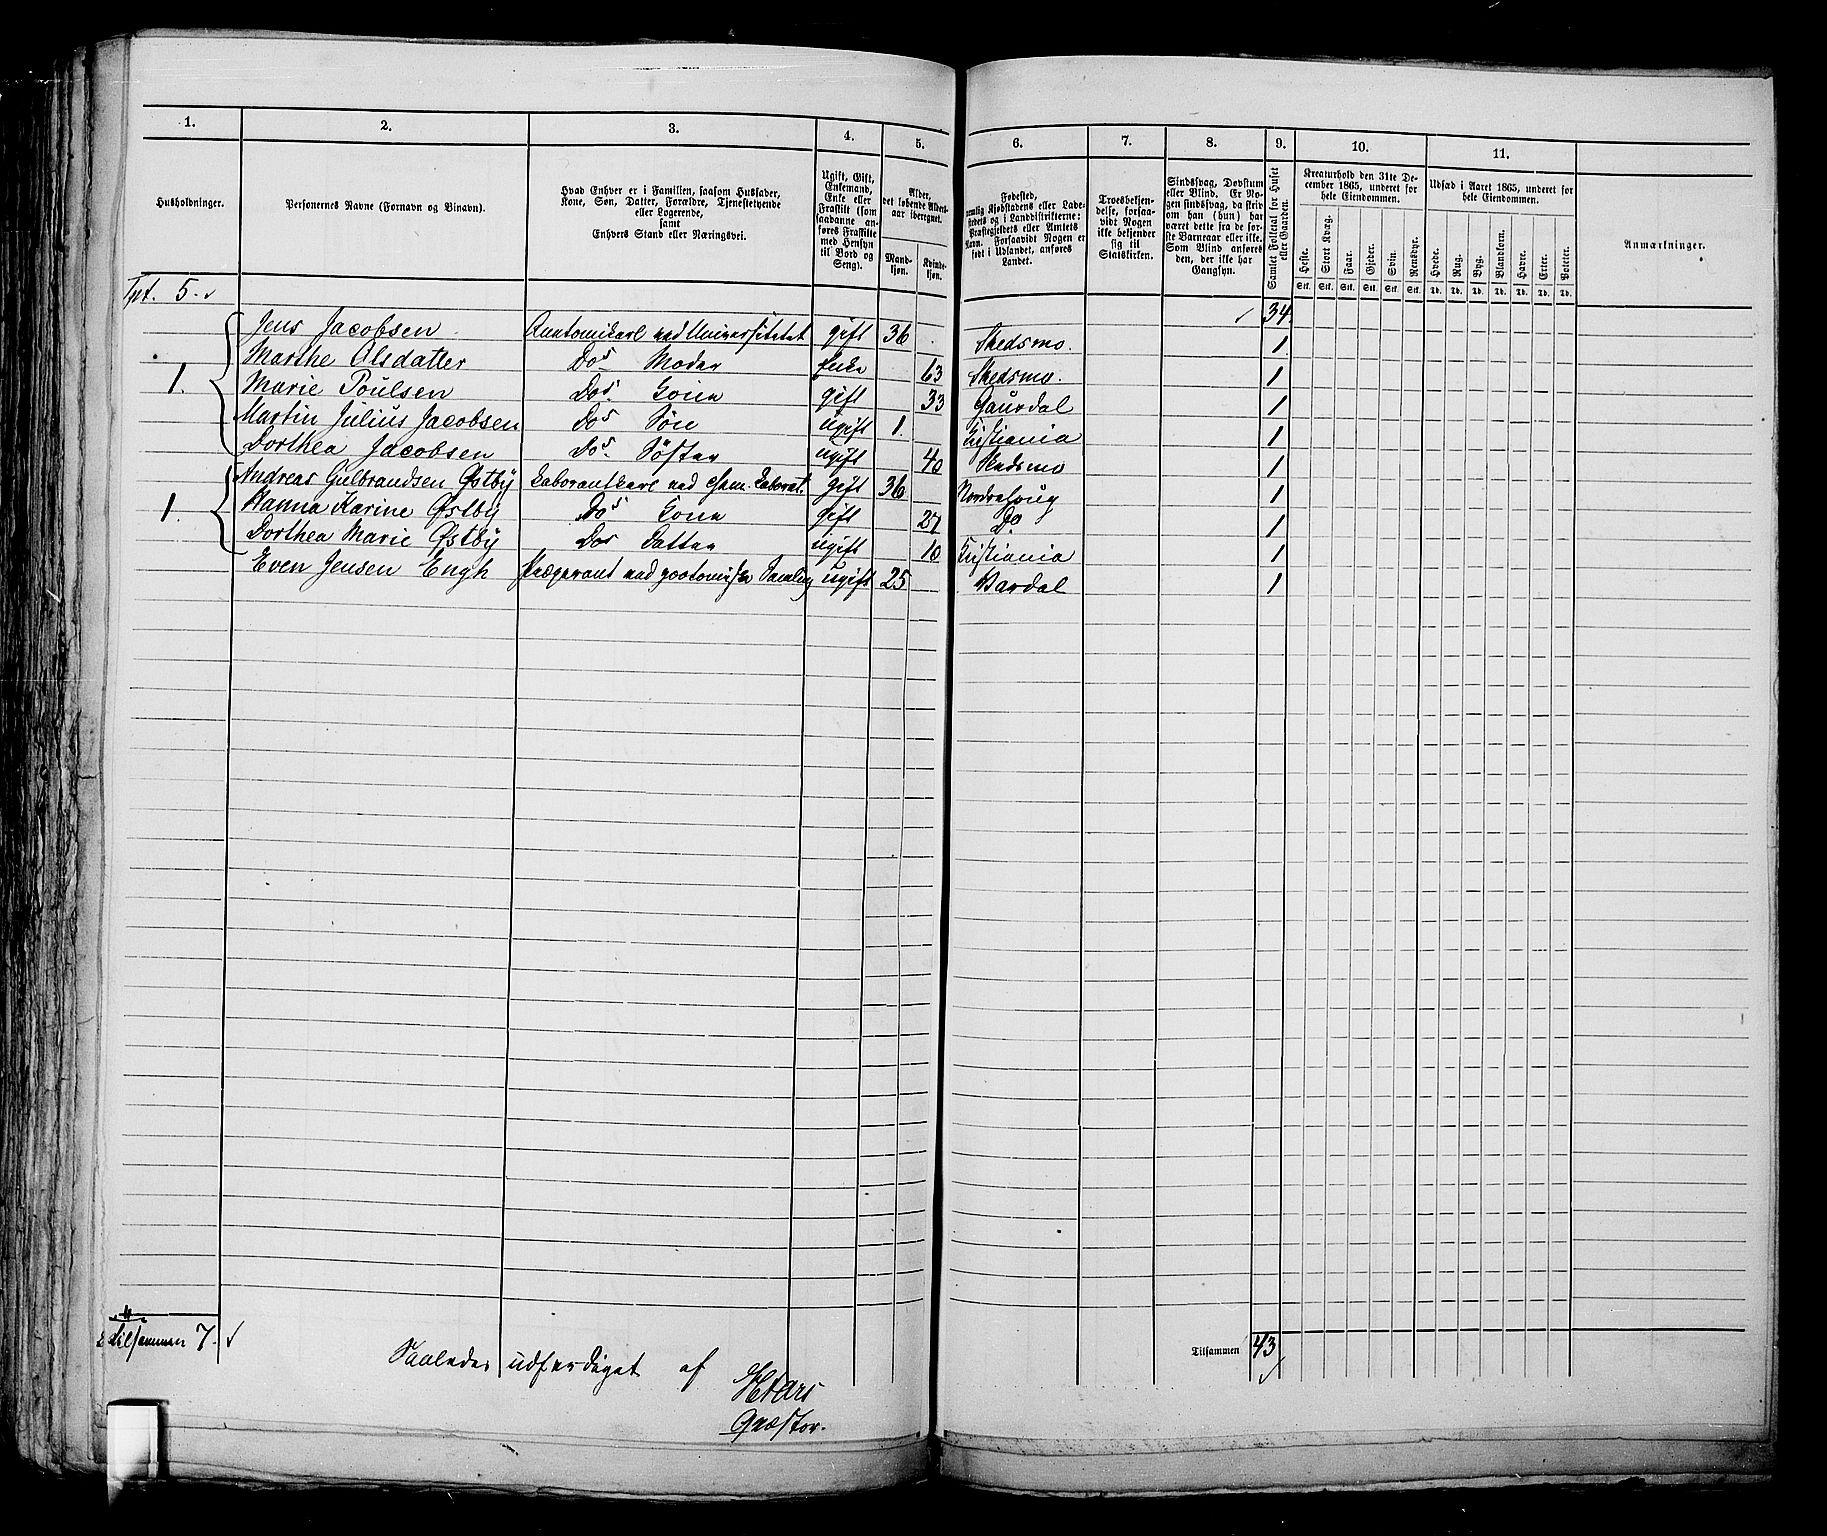 1. 2. 3. 4. 5. 6. 7. 8. 9. 10. 11.
Husholdninger.
Personernes Navne (Fornavn og Binavn).
Hvad Enhver er i Familien, saasom Husfader,
Kone, Søn, Datter, Forældre, Tjenestetyende
eller Logerende,
samt
Enhvers Stand eller Næringsvei.
Ugift, Gift,
Enkemand,
Enke eller
Fraskilt (som
saadanne an-
føres Fraskilte
med Hensyn
til Bord og
Seng).
Alder,
det løbende Alders-
aar iberegnet.
Mand-
kjøn.
Kvinde-
kjøn.
Fødested,
nemlig Kjøbstadens eller Lade-
stedets og i Landdistrikterne:
Præstegjeldets eller Amtets
Navn. Forsaavidt Nogen er
født i Udlandet, anføres
Landet.
Troesbekjen-
delse, forsaa-
vidt Nogen
ikke bekjender
sig til
Statskirken.
Sindssvag, Døvstum
eller Blind. Er No-
gen sindssvag, da skriv
om han (hun) har
været dette fra de før-
ste Barneaar eller ikke.
Som Blind anføres
den, der ikke har
Gangsyn.
Samlet Folketal for Huset
eller Gaarden.
Kreaturhold den 31te De-
cember 1865, underet for
hele Eiendommen.
Heste. Stort Kvæg. Faar. Gjeder. Svin. Rensdyr.
Stk. Stk. Stk. Stk. Stk. Stk.
Udsæd i Aaret 1865, underet for
hele Eiendommen.
Hvede. Rug. Byg. Blandkorn. Havre. Erter. Poteter.
Td. Td. Td. Td. Td. Td. Td.
Anmærkninger.
Tpt. 5. 34.
Jens Jacobsen Anatomikarl ved Universitetet gift 36 Skedsmo. 1
Marthe Olsdatter Dos Moder Enke 63 Skedsmo. 1
1. Marie Poulsen Dos Kone gift 33 Gausdal 1
Martin Julius Jacobsen Dos Søn ugift 1. Kristiania 1
Dorthea Jacobsen Dos Søster ugift 40 Skedsmo 1
Andreas Gulbrandsen Østby Laborantkarl ved chem. Laborat. gift 36 1
1. Hanna Karine Østby Dos Kone gift 27 Do 1
Dorthea Marie Østby Dos Datter ugift 10 Kristiania 1
Even Jensen Engh ved zootomiske Samling ugift 25 1
Tilsammen 7.
Tilsammen 43
Saaledes udferdiget af
Quæstor.